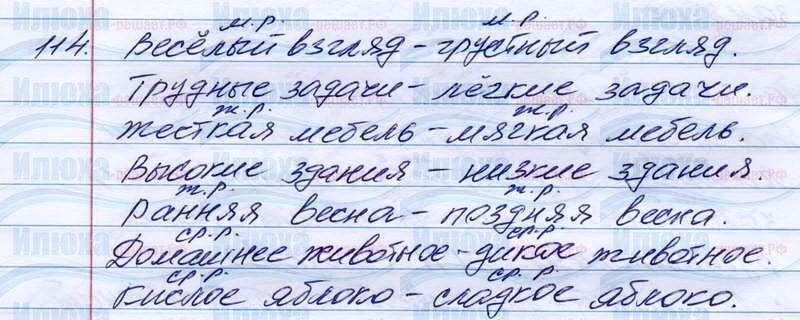 м.р. м.р.
114. Весёлый взгляд - грустный взгляд.
Трудные задачи - лёгкие задачи.
ж.р. ж.р.
Жесткая мебель - мягкая мебель.
Высокие здания - низкие здания.
ж.р. ж.р.
Ранняя весна - поздняя весна.
ср.р. ср.р.
Домашнее животное - дикое животное.
ср.р. ср.р.
Кислое яблоко - сладкое яблоко.